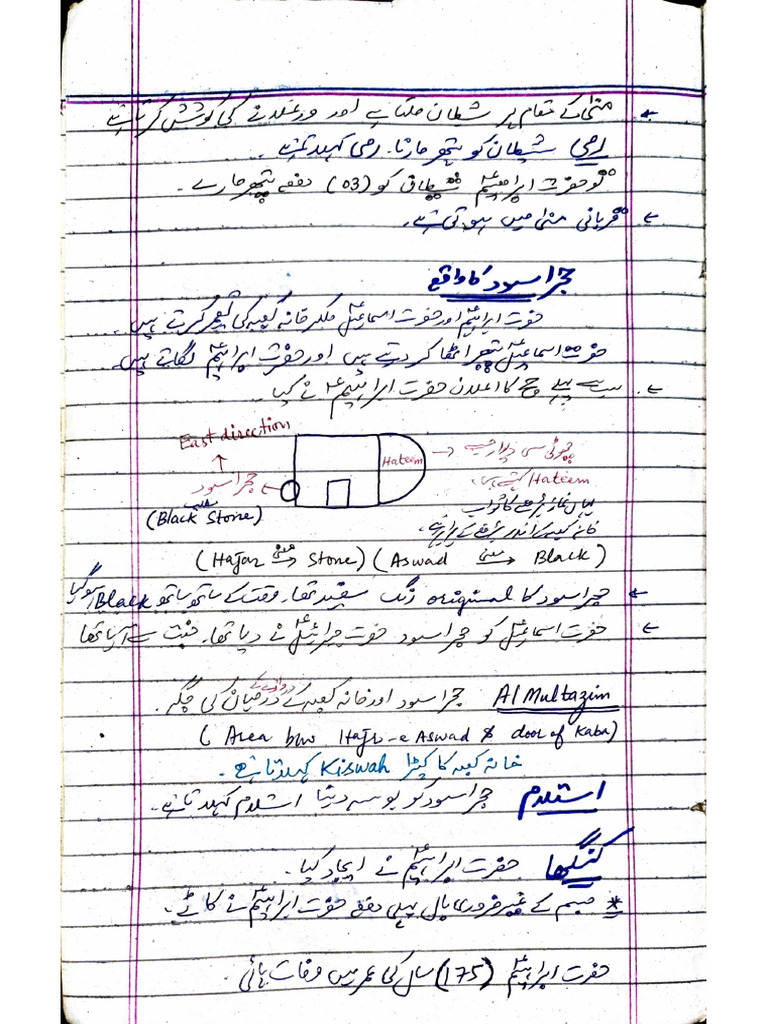 ← منٰی کے مقام پر شیطان ملتا ہے اور ورغلانے کی کوشش کرتا ہے
رمی شیطان کو پتھر مارنا۔ رمی کہلاتا ہے۔
تو حضرت ابراہیمؑ شیطان کو (03) دفعہ پتھر مارے۔
← قربانی منٰی میں ہوتی ہے۔
حجر اسود کا واقع
حضرت ابراہیمؑ اور حضرت اسماعیلؑ ملکر خانہ کعبہ کی تعمیر کرتے ہیں۔
حضرت اسماعیلؑ پتھر اٹھا کر دیتے ہیں اور حضرت ابراہیمؑ لگاتے ہیں۔
← سب سے پہلے حج کا اعلان حضرت ابراہیمؑ نے کیا۔
East direction
Hateem → چھوٹی سی دیوار جسے
Hateem کہتے ہیں۔
حجر اسود
(Black Stone)
یہاں نماز پڑھنے کا ثواب
خانہ کعبہ کے اندر پڑھنے کے برابر ہے۔
(Hajar معنی→ Stone) (Aswad معنی→ Black)
← حجر اسود کا original رنگ سفید تھا۔ وقت کے ساتھ ساتھ Black ہوگیا
← حضرت اسماعیلؑ کو حجر اسود حضرت جبرائیلؑ نے دیا تھا۔ جنت سے آیا تھا
Al Multazim حجر اسود اور خانہ کعبہ کے دروازے کے درمیان کی جگہ۔
(Area b/w Hajr-e Aswad & door of Kaba)
خانہ کعبہ کا کپڑا Kiswah کہلاتا ہے۔
استلام حجر اسود کو بوسہ دینا استلام کہلاتا ہے۔
کنگھا حضرت ابراہیمؑ نے ایجاد کیا۔
* جسم کے غیر ضروری بال پہلی دفعہ حضرت ابراہیمؑ نے کاٹے۔
حضرت ابراہیمؑ (175) سال کی عمر میں وفات پائی۔